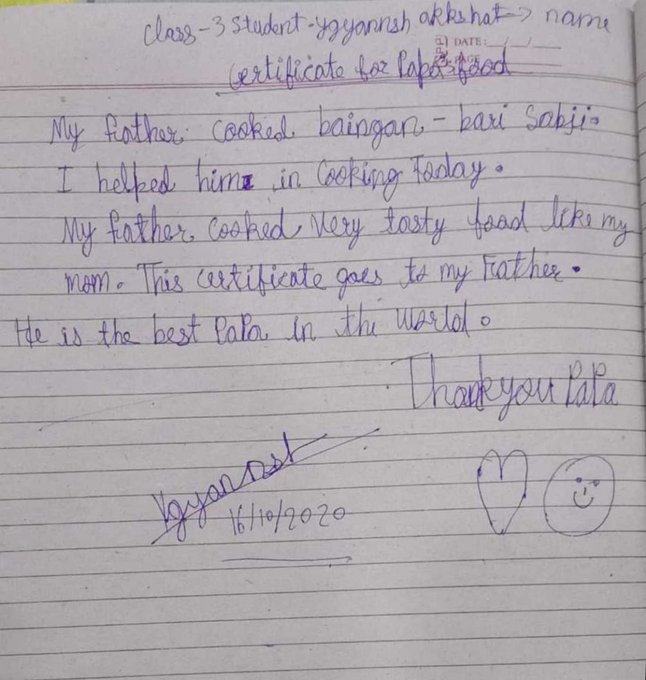 class-3 Student-ygyannsh akkshat → name
DATE:
certificate for Papa's food
My Father cooked baingan - bari Sabji.
I helped him in Cooking Today.
My father cooked Very tasty food like my
mom. This certificate goes to my Father.
He is the best PaPa in the world.
Thankyou PaPa
16/10/2020